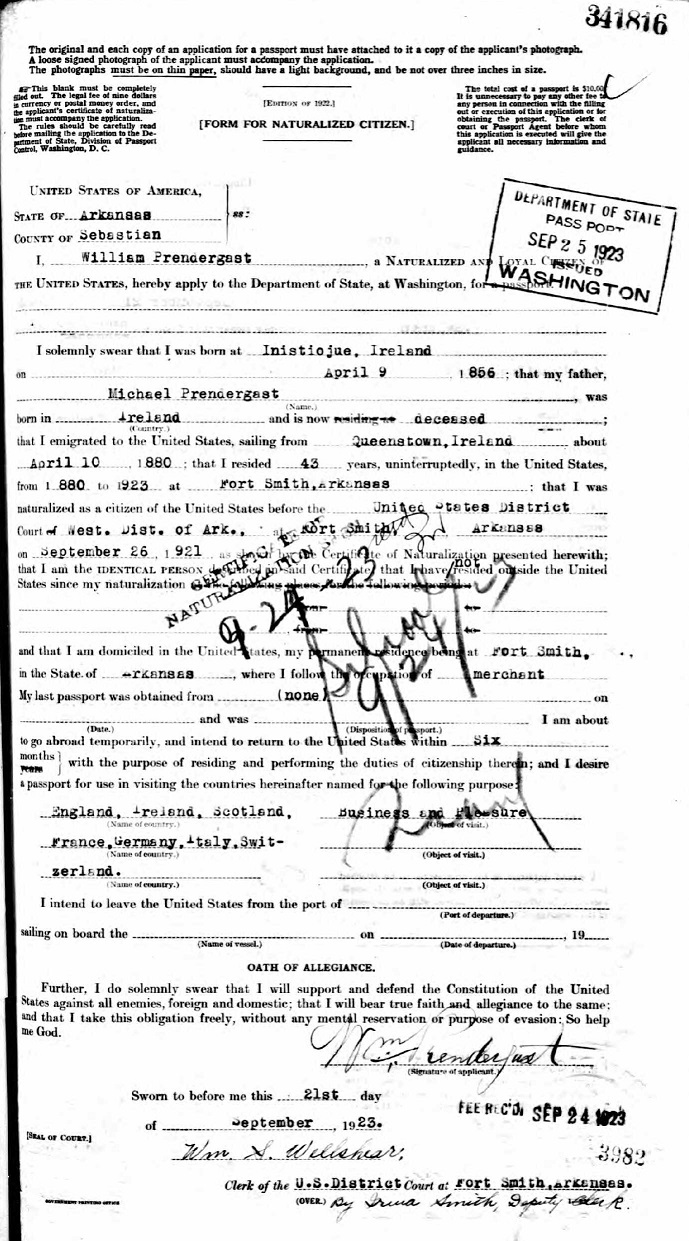 341816
The original and each copy of an application for a passport must have attached to it a copy of the applicant's photograph.
A loose signed photograph of the applicant must accompany the application.
The photographs must be on thin paper, should have a light background, and be not over three inches in size.
This blank must be completely
filled out. The legal fee of nine dollars
in currency or postal money order, and
the applicant's certificate of naturaliza-
tion must accompany the application.
The rules should be carefully read
before mailing the application to the De-
partment of State, Division of Passport
Control, Washington, D. C.
[EDITION OF 1922.]
[FORM FOR NATURALIZED CITIZEN.]
The total cost of a passport is $10.00.
It is unnecessary to pay any other fee to
any person in connection with the filling
out or execution of this application or for
obtaining the passport. The clerk of
court or Passport Agent before whom
this application is executed will give the
applicant all necessary information and
guidance.
UNITED STATES OF AMERICA,
STATE OF Arkansas
ss:
COUNTY OF Sebastian
DEPARTMENT OF STATE
PASSPORT
SEP 25 1923
ISSUED
WASHINGTON
I, William Prendergast, a NATURALIZED AND LOYAL CITIZEN OF
THE UNITED STATES, hereby apply to the Department of State, at Washington, for a passport.
I solemnly swear that I was born at Inistiojue, Ireland
on April 9 1856; that my father,
Michael Prendergast, was
(Name.)
born in Ireland and is now residing at deceased;
(Country.)
that I emigrated to the United States, sailing from Queenstown, Ireland about
April 10 1880; that I resided 43 years, uninterruptedly, in the United States,
from 1880 to 1923 at Fort Smith, Arkansas; that I was
naturalized as a citizen of the United States before the United States District
Court of West. Dist. of Ark., at Fort Smith, Arkansas
on September 26, 1921, as shown by the Certificate of Naturalization presented herewith;
that I am the IDENTICAL PERSON described in said Certificate; that I have not resided outside the United
States since my naturalization at the following places for the following periods:
CERTIFICATE OF
NATURALIZATION
9-24-23
from to
from to
9/24
and that I am domiciled in the United States, my permanent residence being at Fort Smith,
in the State of Arkansas, where I follow the occupation of merchant
My last passport was obtained from (none) on
and was I am about
(Date.) (Disposition of passport.)
to go abroad temporarily, and intend to return to the United States within Six
months
years
with the purpose of residing and performing the duties of citizenship therein; and I desire
a passport for use in visiting the countries hereinafter named for the following purpose:
England, Ireland, Scotland, Business and Pleasure
(Name of country.) (Object of visit.)
France, Germany, Italy, Swit-
(Name of country.) (Object of visit.)
zerland.
(Name of country.) (Object of visit.)
I intend to leave the United States from the port of
(Port of departure.)
sailing on board the on , 19
(Name of vessel.) (Date of departure.)
OATH OF ALLEGIANCE.
Further, I do solemnly swear that I will support and defend the Constitution of the United
States against all enemies, foreign and domestic; that I will bear true faith and allegiance to the same;
and that I take this obligation freely, without any mental reservation or purpose of evasion: So help
me God.
Wm. Prendergast
(Signature of applicant.)
Sworn to before me this 21st day
of September, 1923.
FEE REC'D. SEP 24 1923
[SEAL OF COURT.]
Wm. S. Wellshear,
3982
Clerk of the U.S. District Court at Fort Smith, Arkansas.
(OVER.) By Irma Smith, Deputy Clerk.
GOVERNMENT PRINTING OFFICE